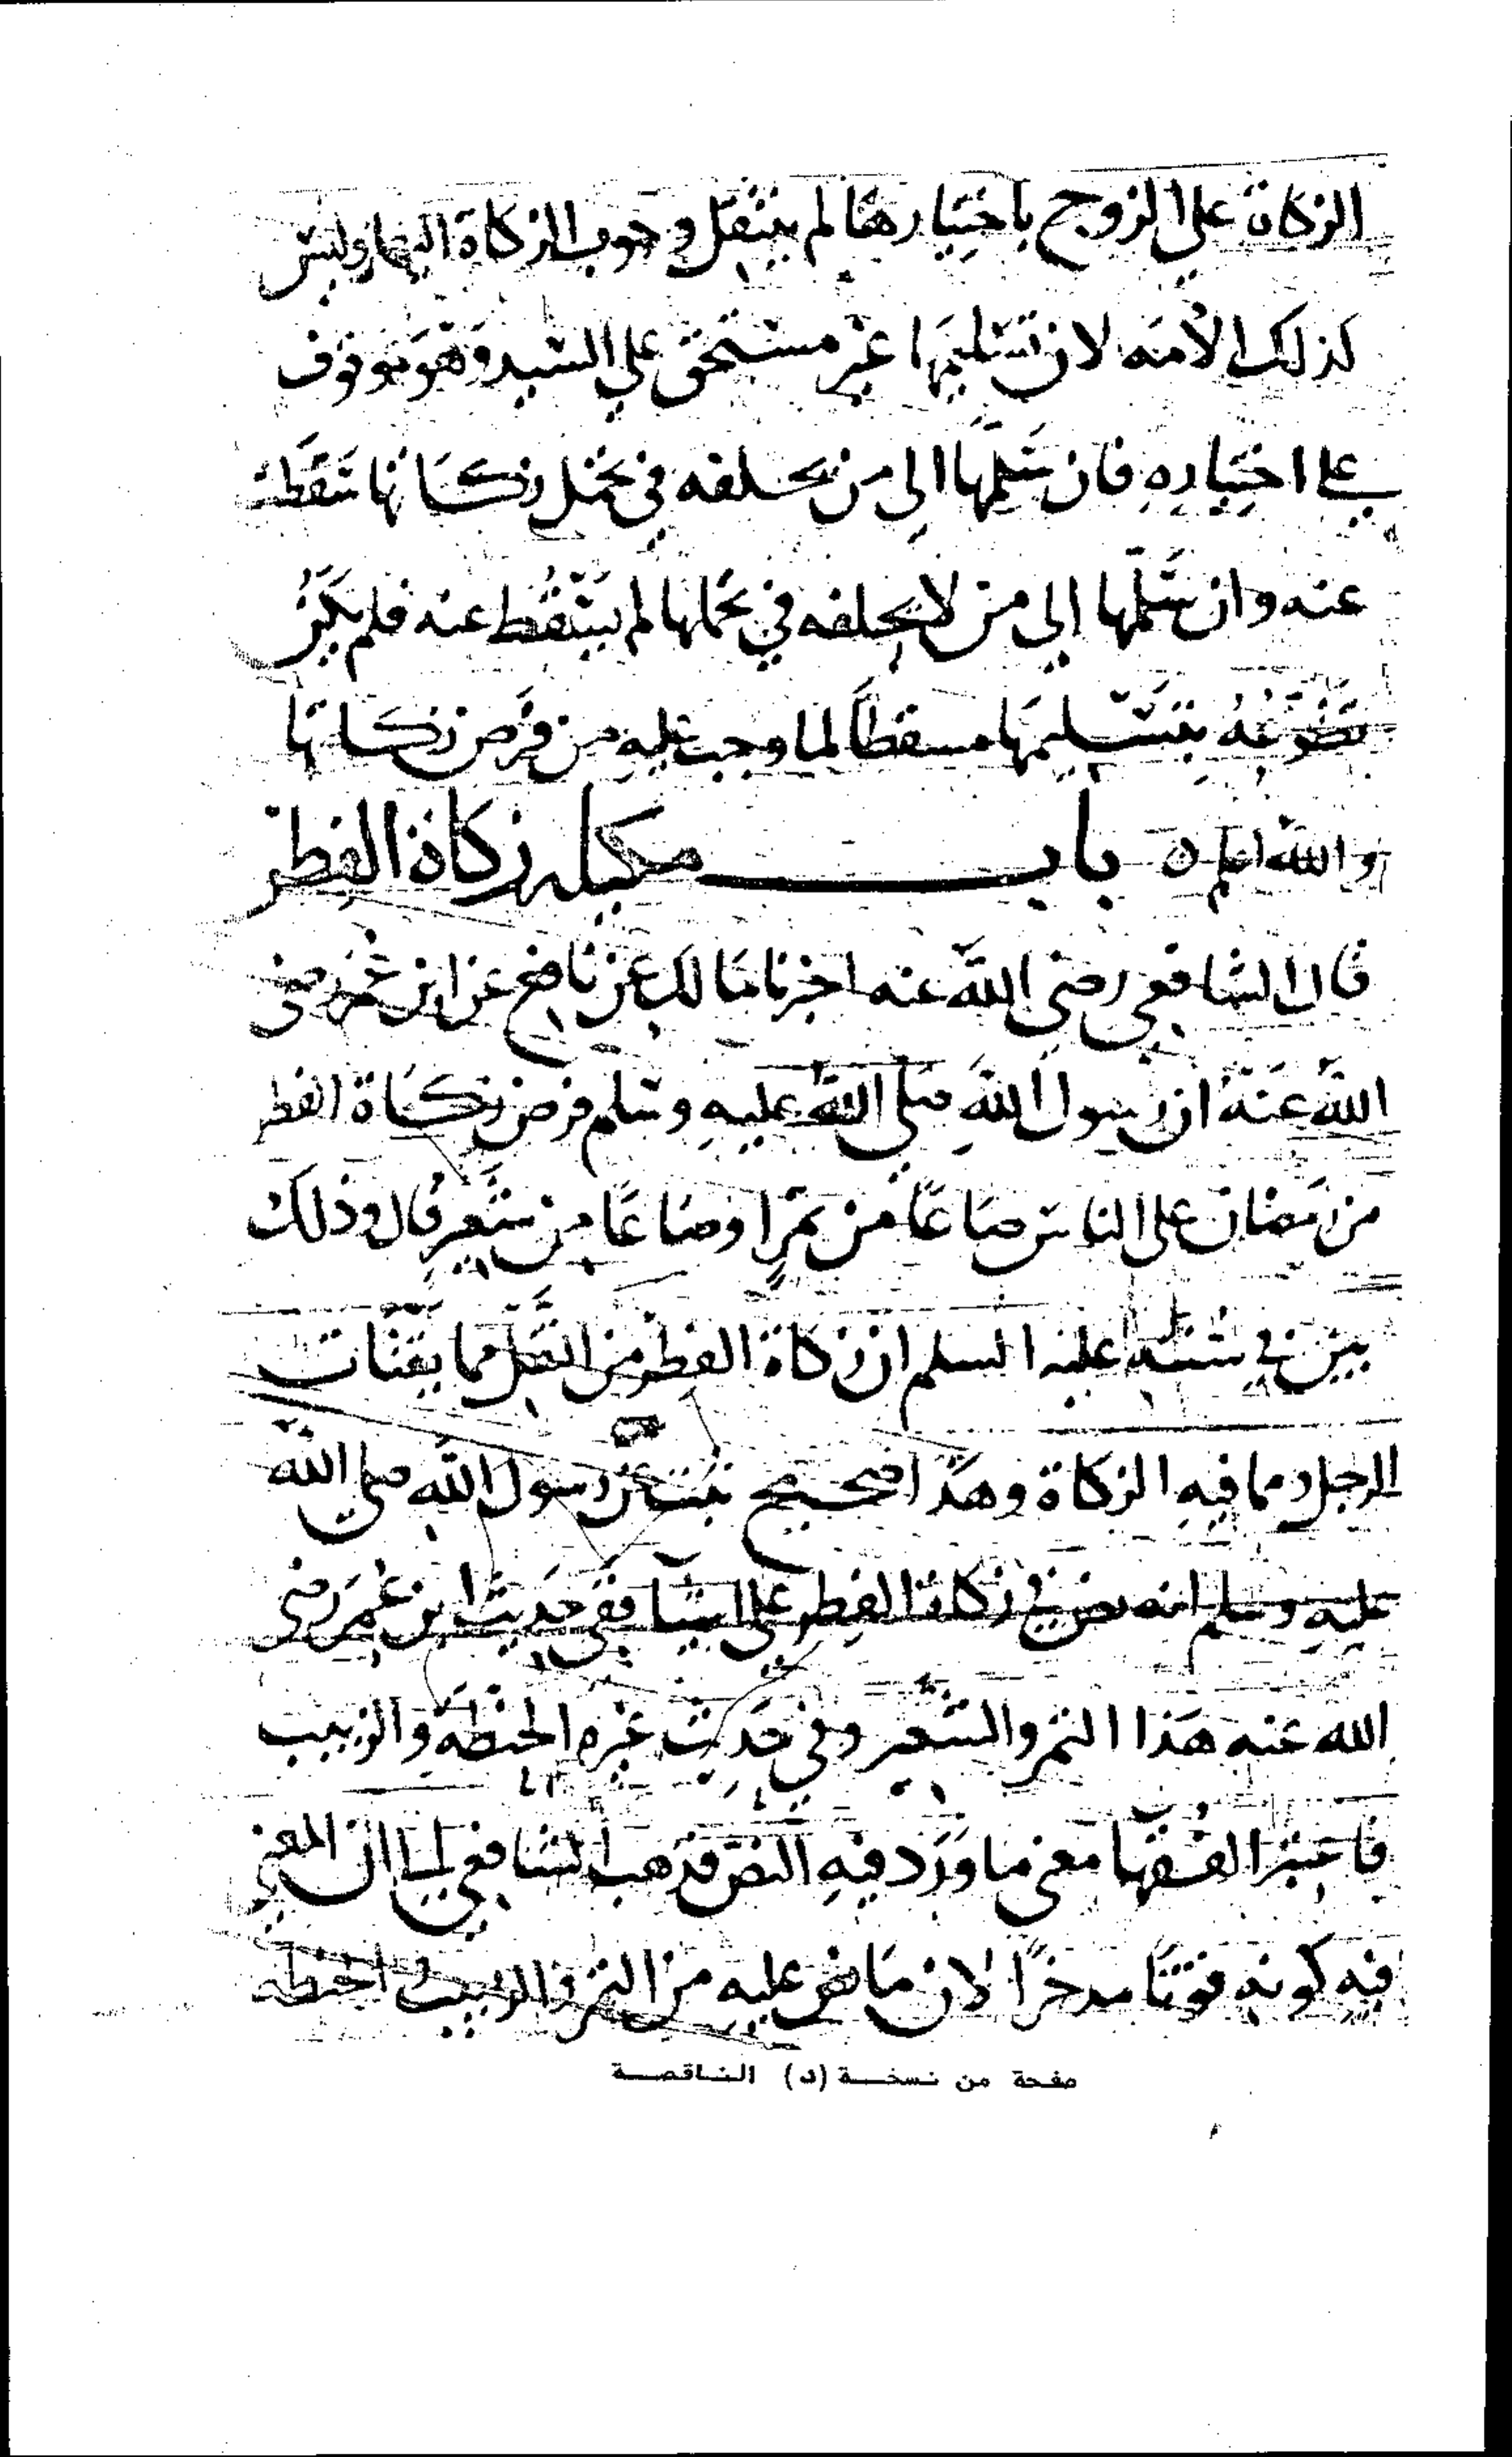 الزكاة على الزوج باختيارها لم ينتقل وجوب الزكاة اليها وليس
كذلك الأمه لان تسليمها غير مستحق على السيد وهو موقوف
على اختياره فان سلمها الى من يخلفه في تحمل زكاتها سقطت
عنه وان سلمها إلى من لا يخلفه في تحملها لم يسقط عنه فلم يكن
تطوعه بتسليمها مسقطاً لما وجب عليه من فرض زكاتها
والله اعلم ه باب مكيلة زكاة الفطر
قال الشافعي رضي الله عنه اخبرنا مالك عن نافع عن ابن عمر رضي
الله عنه ان رسول الله صلى الله عليه وسلم فرض زكاة الفطر
من رمضان على الناس صاعًا من تمرٍ او صاعًا من شعيرٍ قال وذلك
بين في سنته عليه السلم ان زكاة الفطر من البقل مما يقتات
الرجل ومما فيه الزكاة وهذا صحيح ثبت عن رسول الله صلى الله
عليه وسلم انه نص في زكاة الفطر على اشيآ ففي حديث ابن عمر رضي
الله عنه هذا التمر والشعير وفي حديث غيره الحنطة والزبيب
فاعتبر الفقها معنى ما ورد فيه النص فذهب الشافعي الى ان المعنى
فيه كونه قوتًا مدخرًا لان ما نص عليه من التمر والزبيب والحنطه
صفحة من نسخة (د) الناقصة